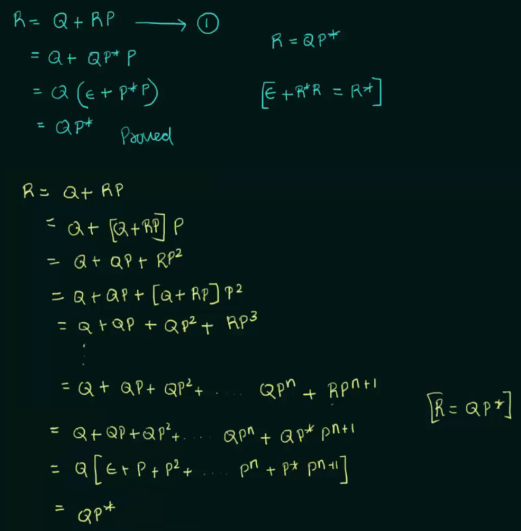 R = Q + RP ⟶ ①
R = QP*
= Q + QP* P
= Q (ϵ + P*P)
[ϵ + R*R = R*]
= QP* Proved
R = Q + RP
= Q + [Q + RP] P
= Q + QP + RP²
= Q + QP + [Q + RP] P²
= Q + QP + QP² + RP³
⋮
= Q + QP + QP² + ..... QPⁿ + RPⁿ⁺¹
[R = QP*]
= Q + QP + QP² + ..... QPⁿ + QP* Pⁿ⁺¹
= Q [ϵ + P + P² + ..... Pⁿ + P* Pⁿ⁺¹]
= QP*